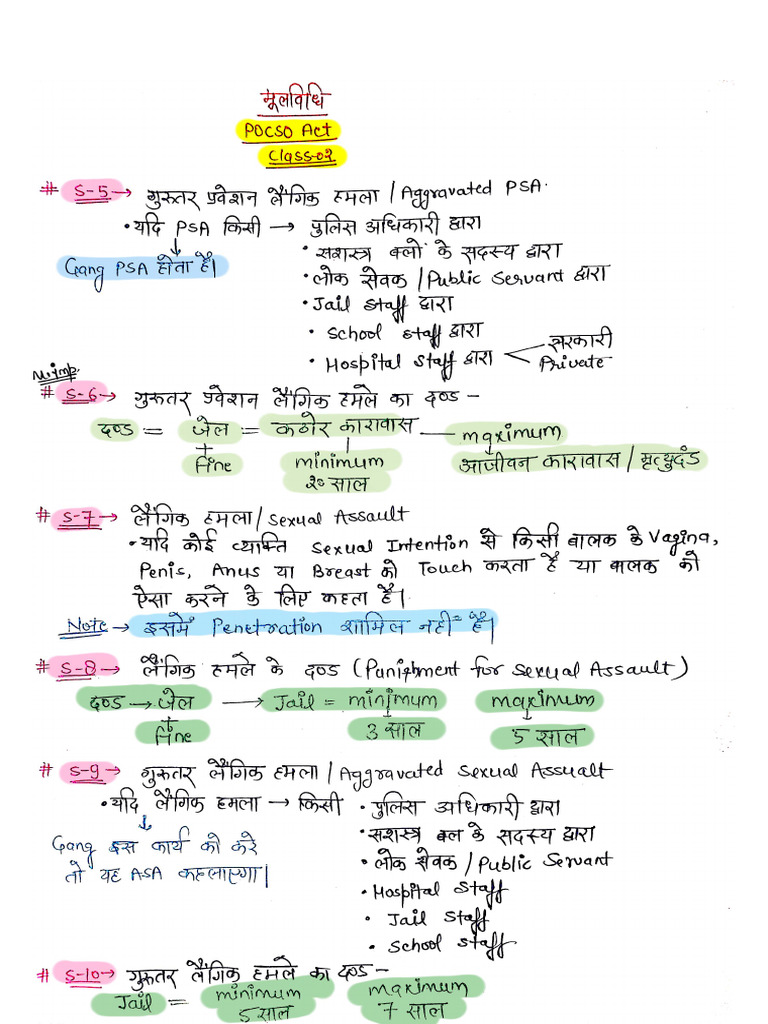 मूलविधि
POCSO Act
Class-02
# S-5 → गुरुतर प्रवेशन लैंगिक हमला / Aggravated PSA.
• यदि PSA किसी → पुलिस अधिकारी द्वारा
Gang PSA होता है।
• सशस्त्र बलों के सदस्य द्वारा
• लोक सेवक / Public Servant द्वारा
• Jail Staff द्वारा
• School Staff द्वारा
• Hospital Staff द्वारा < सरकारी
Private
M.imp.
# S-6 → गुरुतर प्रवेशन लैंगिक हमले का दण्ड -
दण्ड = जेल = कठोर कारावास — maximum
+ Fine minimum आजीवन कारावास / मृत्युदंड
20 साल
# S-7 → लैंगिक हमला / Sexual Assault
• यदि कोई व्यक्ति Sexual Intention से किसी बालक के Vagina,
Penis, Anus या Breast को Touch करता है या बालक को
ऐसा करने के लिए कहता है।
Note → इसमें Penetration शामिल नहीं है।
# S-8 → लैंगिक हमले के दण्ड (Punishment for Sexual Assault)
दण्ड → जेल → Jail = minimum maximum
+ Fine 3 साल 5 साल
# S-9 → गुरुतर लैंगिक हमला / Aggravated Sexual Assualt
• यदि लैंगिक हमला → किसी • पुलिस अधिकारी द्वारा
Gang इस कार्य को करे
तो यह ASA कहलाएगा।
• सशस्त्र बल के सदस्य द्वारा
• लोक सेवक / Public Servant
• Hospital Staff
• Jail Staff
• School Staff
# S-10 → गुरुतर लैंगिक हमले का दण्ड -
Jail = minimum maximum
5 साल 7 साल